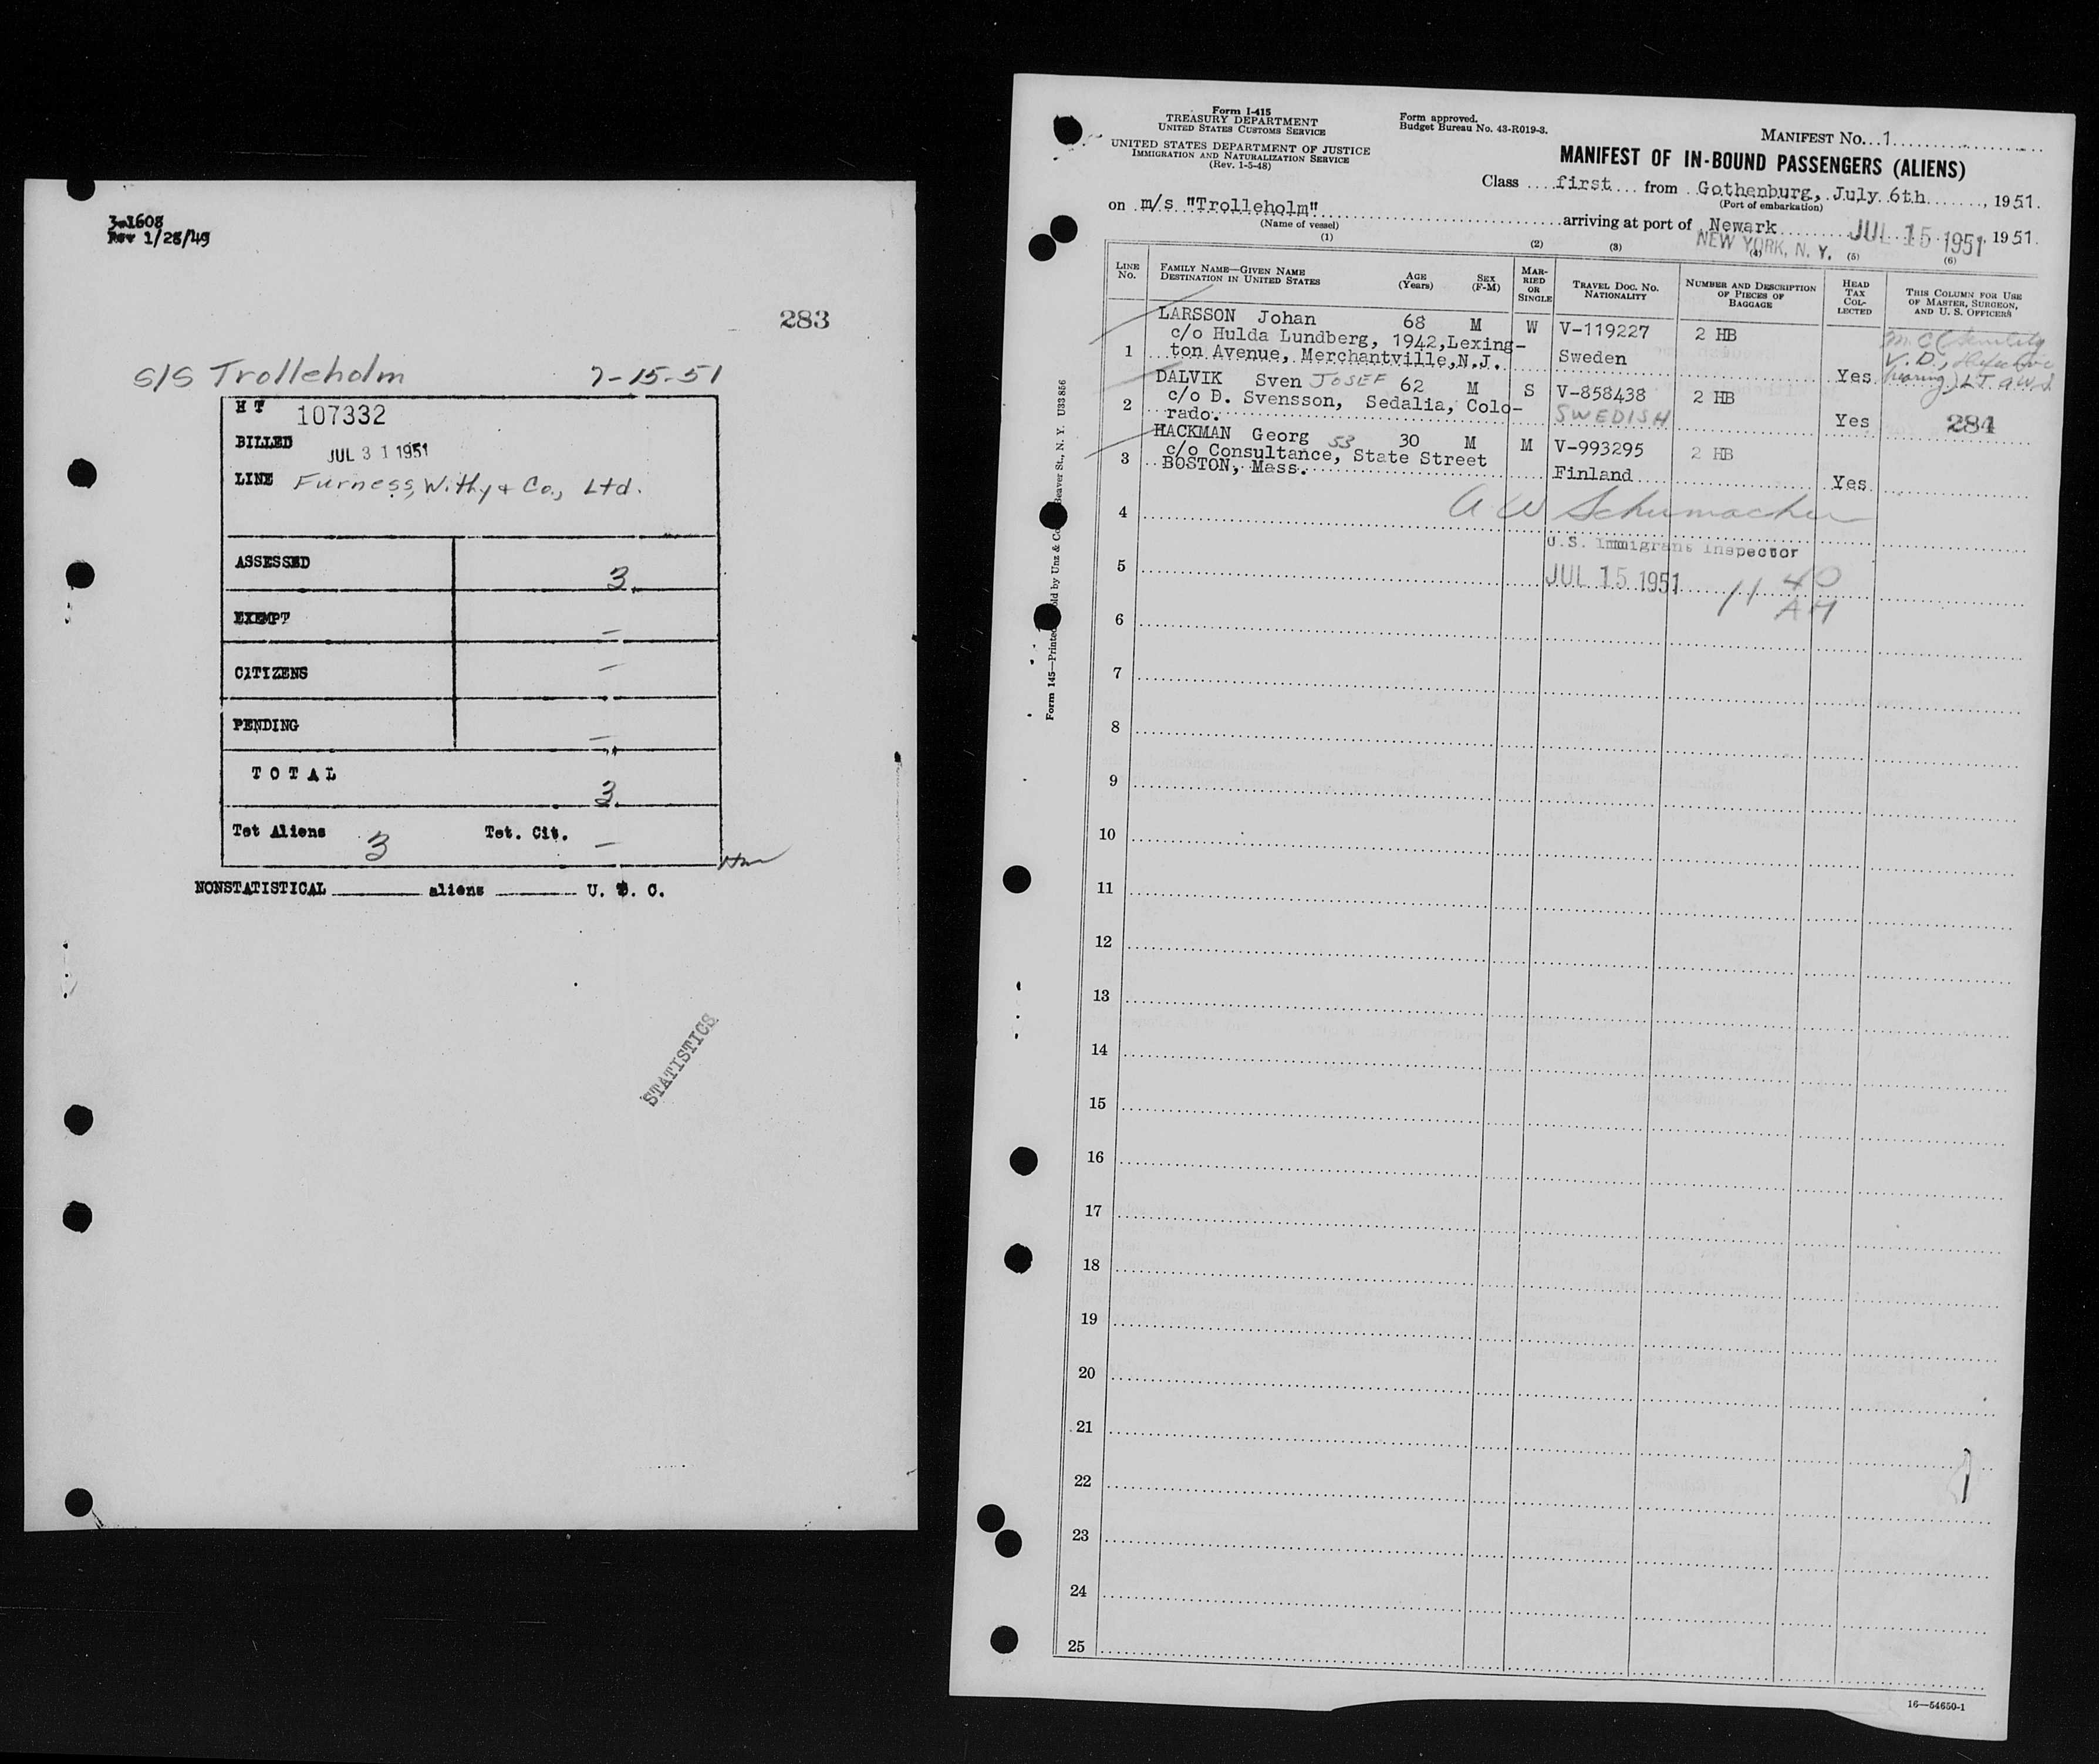 3-1608
Rev 1/28/49
283
S/S Trolleholm 7-15-51
H T 107332
BILLED JUL 3 1 1951
LINE Furness, Withy & Co., Ltd.
ASSESSED 3
EXEMPT –
CITIZENS –
PENDING –
T O T A L 3
Tot Aliens 3 Tot. Cit. –
NONSTATISTICAL aliens U. S. C.
STATISTICS
Form I-415
TREASURY DEPARTMENT
UNITED STATES CUSTOMS SERVICE
UNITED STATES DEPARTMENT OF JUSTICE
IMMIGRATION AND NATURALIZATION SERVICE
(Rev. 1-5-48)
Form approved.
Budget Bureau No. 43-R019-3.
MANIFEST No. 1
MANIFEST OF IN-BOUND PASSENGERS (ALIENS)
Class first from Gothenburg, July 6th, 1951.
(Port of embarkation)
on m/s "Trolleholm" arriving at port of Newark JUL 15 1951, 1951.
(Name of vessel)
NEW YORK, N. Y.
(1) (2) (3) (4) (5) (6)
LINE No.
FAMILY NAME—GIVEN NAME
DESTINATION IN UNITED STATES
AGE (Years)
SEX (F-M)
MARRIED OR SINGLE
TRAVEL DOC. NO.
NATIONALITY
NUMBER AND DESCRIPTION OF PIECES OF BAGGAGE
HEAD TAX COLLECTED
THIS COLUMN FOR USE OF MASTER, SURGEON, AND U. S. OFFICERS
LARSSON Johan 68 M W V-119227 2 HB
c/o Hulda Lundberg, 1942,Lexing-
1 ton Avenue, Merchantville,N.J. Sweden Yes
V.D., defective
hearing)
DALVIK Sven JOSEF 62 M S V-858438 2 HB
c/o D. Svensson, Sedalia, Colo-
2 rado. SWEDISH Yes 284
HACKMAN Georg 53 30 M M V-993295 2 HB
c/o Consultance, State Street
3 BOSTON, Mass. Finland Yes
A W Schumacher
4
U.S. Immigrant Inspector
5 JUL 15 1951 11 40
AM
6
7
8
9
10
11
12
13
14
15
16
17
18
19
20
21
22
23
24
25
16—54650-1